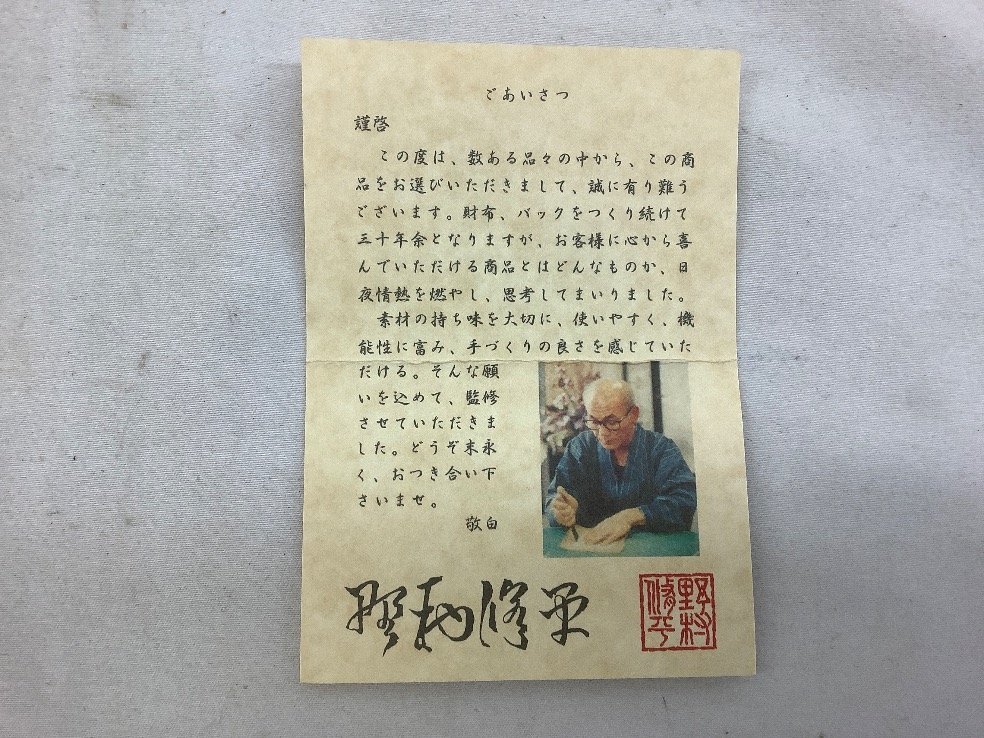 ごあいさつ
謹啓
この度は、数ある品々の中から、この商
品をお選びいただきまして、誠に有り難う
ございます。財布、バックをつくり続けて
三十年余となりますが、お客様に心から喜
んでいただける商品とはどんなものか、日
夜情熱を燃やし、思考してまいりました。
素材の持ち味を大切に、使いやすく、機
能性に富み、手づくりの良さを感じていた
だける。そんな願
いを込めて、監修
させていただきま
した。どうぞ末永
く、おつき合い下
さいませ。
敬白
野村修平
野村
脩平